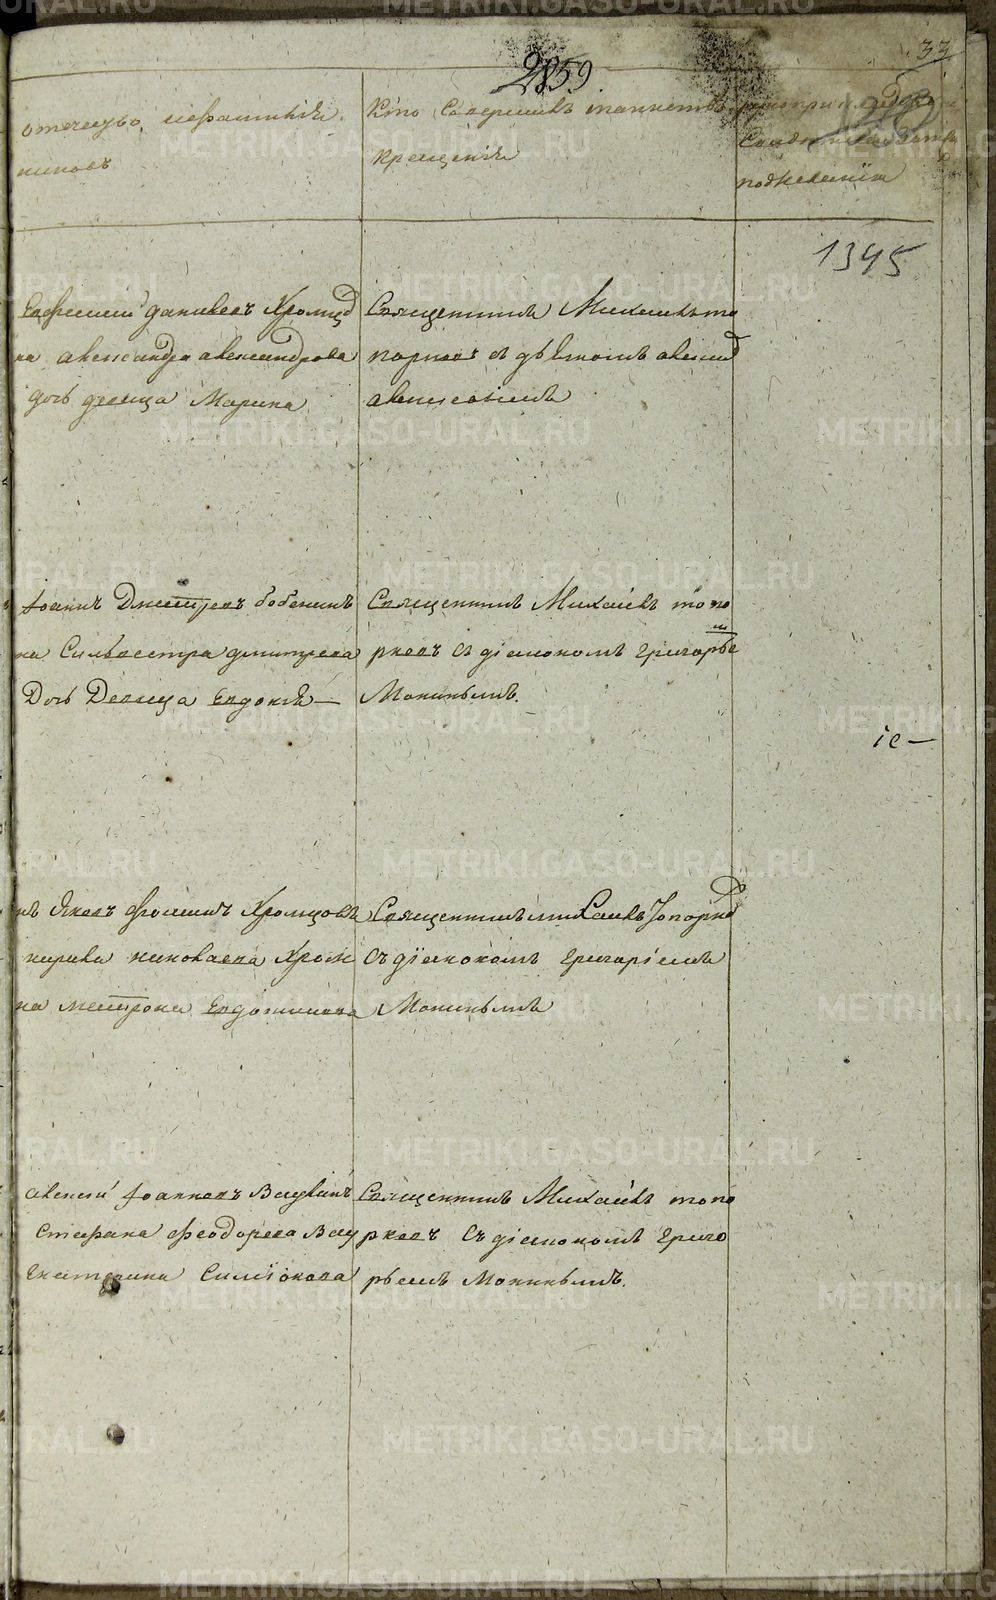 33
2859
отечество, ифамилия.
никовъ
Кто Совершилъ таинство
крещения
рукоприкладство
подъжеланию
1395
Евфимий даниловъ Хромцо
на александра александрова
дочь девица Марина
Священникъ Михаилъ то
порковъ съ дьякомъ алексее
алексеевымъ
Іоаннъ Дмитревъ бобенинъ
на Сильвестра дмитрева
Дочь Девица Евдокия —
Священникъ Михаилъ топо
рковъ съ діакономъ григорье
Мокинымъ.
іе —
нъ Яковъ Фоминъ Хромцовъ
кирила николаева Хром
на матрона Евдокимова
Священникъ михаилъ Топорко
Съ діакономъ григоріемъ
Мокинымъ
алексий Іоанновъ Ваулинъ
Стефана Феодорова Вау
Екатерина Симіонова
Священникъ Михаилъ топо
рковъ Съ діакономъ григо
рьемъ Мокинымъ.
METRIKI.GASO-URAL.RU